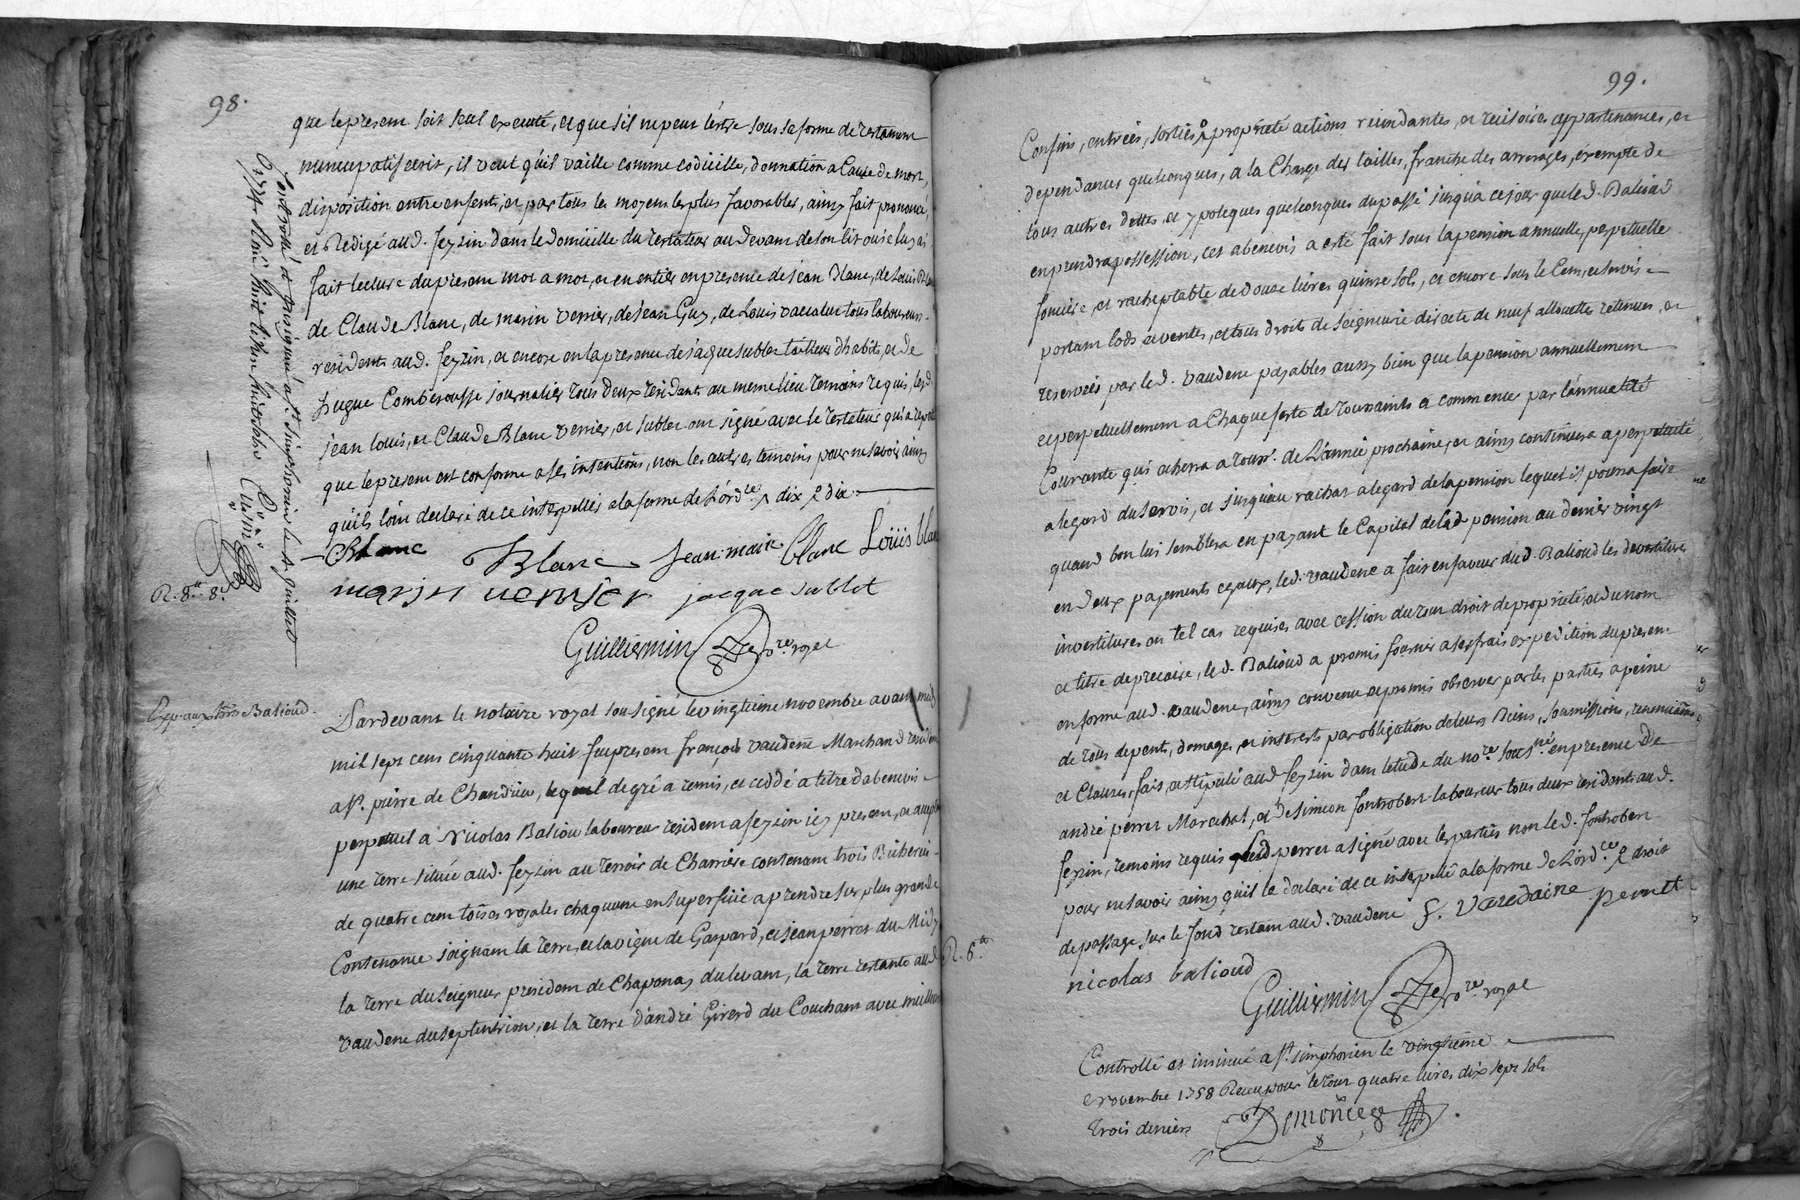 98.
que le present soit seul executé, et que s'il ne peut l'estre sous sa forme de testament
nuncupatif ecrit, il veut qu'il vaille comme codicille, donnation a Cause de mort,
disposition entre enfents, et par tous les moyens les plus favorables, ainsy fait prononcé,
et Redigé aud. feyzin dans le domicille du testateur au devant de son lit ou je luy ai
fait lecture du present mot a mot, et en entier en presence de jean Blanc, de Louis
de Claude Blanc, de marin verrier, de jean Guy, de Louis tous laboureurs
residents aud. feyzin, et encore en la presence de jacque sublet tailleur d'habits, et de
hugue Comberousse journalier tous deux residant au meme lieu temoins requis, lesd
jean louis, et Claude Blanc verrier, et sublet ont signé avec le testateur qui a
que le present est conforme a ses intentions, non les autres temoins pour ne savoir ainsy
qu'ils l'ont declaré de ce interpellés a la forme de l'ord.re dix dix
Blanc Blanc jean marie blanc Loüis blanc
marin verrier jacque sublet
Guilliermin No.re royal
Controllé et insinué a s.t simphorien le 14 juillet
1774
R. 8.# 8.s
Exp. aux Balioud.
Pardevant le notaire royal sousigné le vingtieme novembre avant midy
mil sept cens cinquante huit fut present françois vaudene Marchand resident
a s.t pierre de Chandieu, lequel de gré a remis, et ceddé a titre d'abenevis
perpetuel à Nicolas Baliou laboureur resident a feyzin icy present, et
une terre située aud. feyzin au terroir de Charriere contenant trois Bicherees
de quatre cent toises royales chaqunne en superficie a prendre sur plus grande
Contenance joignant la terre, et la vigne de Gaspard, et jean perret du Midy
la terre du seigneur president de Chaponay du levant, la terre restante aud.
vaudene du septentrion, et la terre d'andré Girerd du Couchant avec meilleurs
99.
Confins, entrées, sorties, propriété actions rescindantes, et rescisoires appartenances, et
dependances quelconques, a la Charge des tailles, franche des arrerages, exempte de
tous autres dettes, et ypoteques quelconques du passé jusqu'a ce jour que led. Balioud
en prendra possession, cet abenevis a esté fait sous la pension annuelle, perpetuelle
fonciere, et rachеptable de douze livres quinze sols, et encore sous le Cens, et servis
portant lods et ventes, et tous droits de seigneurie directe de neuf allouettes retenues, et
reservées par led. vaudene payables aussy bien que la pension annuellement
et perpetuellement a Chaque feste de toussaints a commencer par l'annualité
Courante qui echerra a touss.t de L'année prochaine, et ainsy continuera a perpetuité
a l'egard du servis, et jusqu'au rachat a l'egard de la pension lequel il pourra faire
quand bon lui semblera en payant le Capital de lad. pension au denier vingt
en deux payements egaux, led. vaudene a fait en faveur dud. Balioud les devestitures
investitures en tel cas requises avec cession du tout droit de proprieté, et du nom
et titre de precaire, led. Balioud a promis fournir a ses frais expedition du present
en forme aud. vaudene, ainsy convenu et promis observer par les parties a peine
de tous depents, domages, et interests par obligation de leurs Biens, soumissions, renonciations
et Clauses, fait, et stipulé aud. feyzin dans l'etude du no.re sous.né en presence de
andré perret Marechal, et de simeon fontrobert laboureur tous deux residents aud.
feyzin, temoins requis led. perret a signé avec les parties non led. fontrobert
pour ne savoir ainsy qu'il l'a declaré de ce interpellé a la forme de L'ord.ce droit
de passage sur le fond restant aud. vaudene f. vaudaine perret
nicolas balioud
R. 6.#
Guilliermin No.re royal
Controllé et insinué a s.t simphorien le vingtieme
novembre 1758 Reçu pour le tout quatre livres dix sept sols
trois deniers